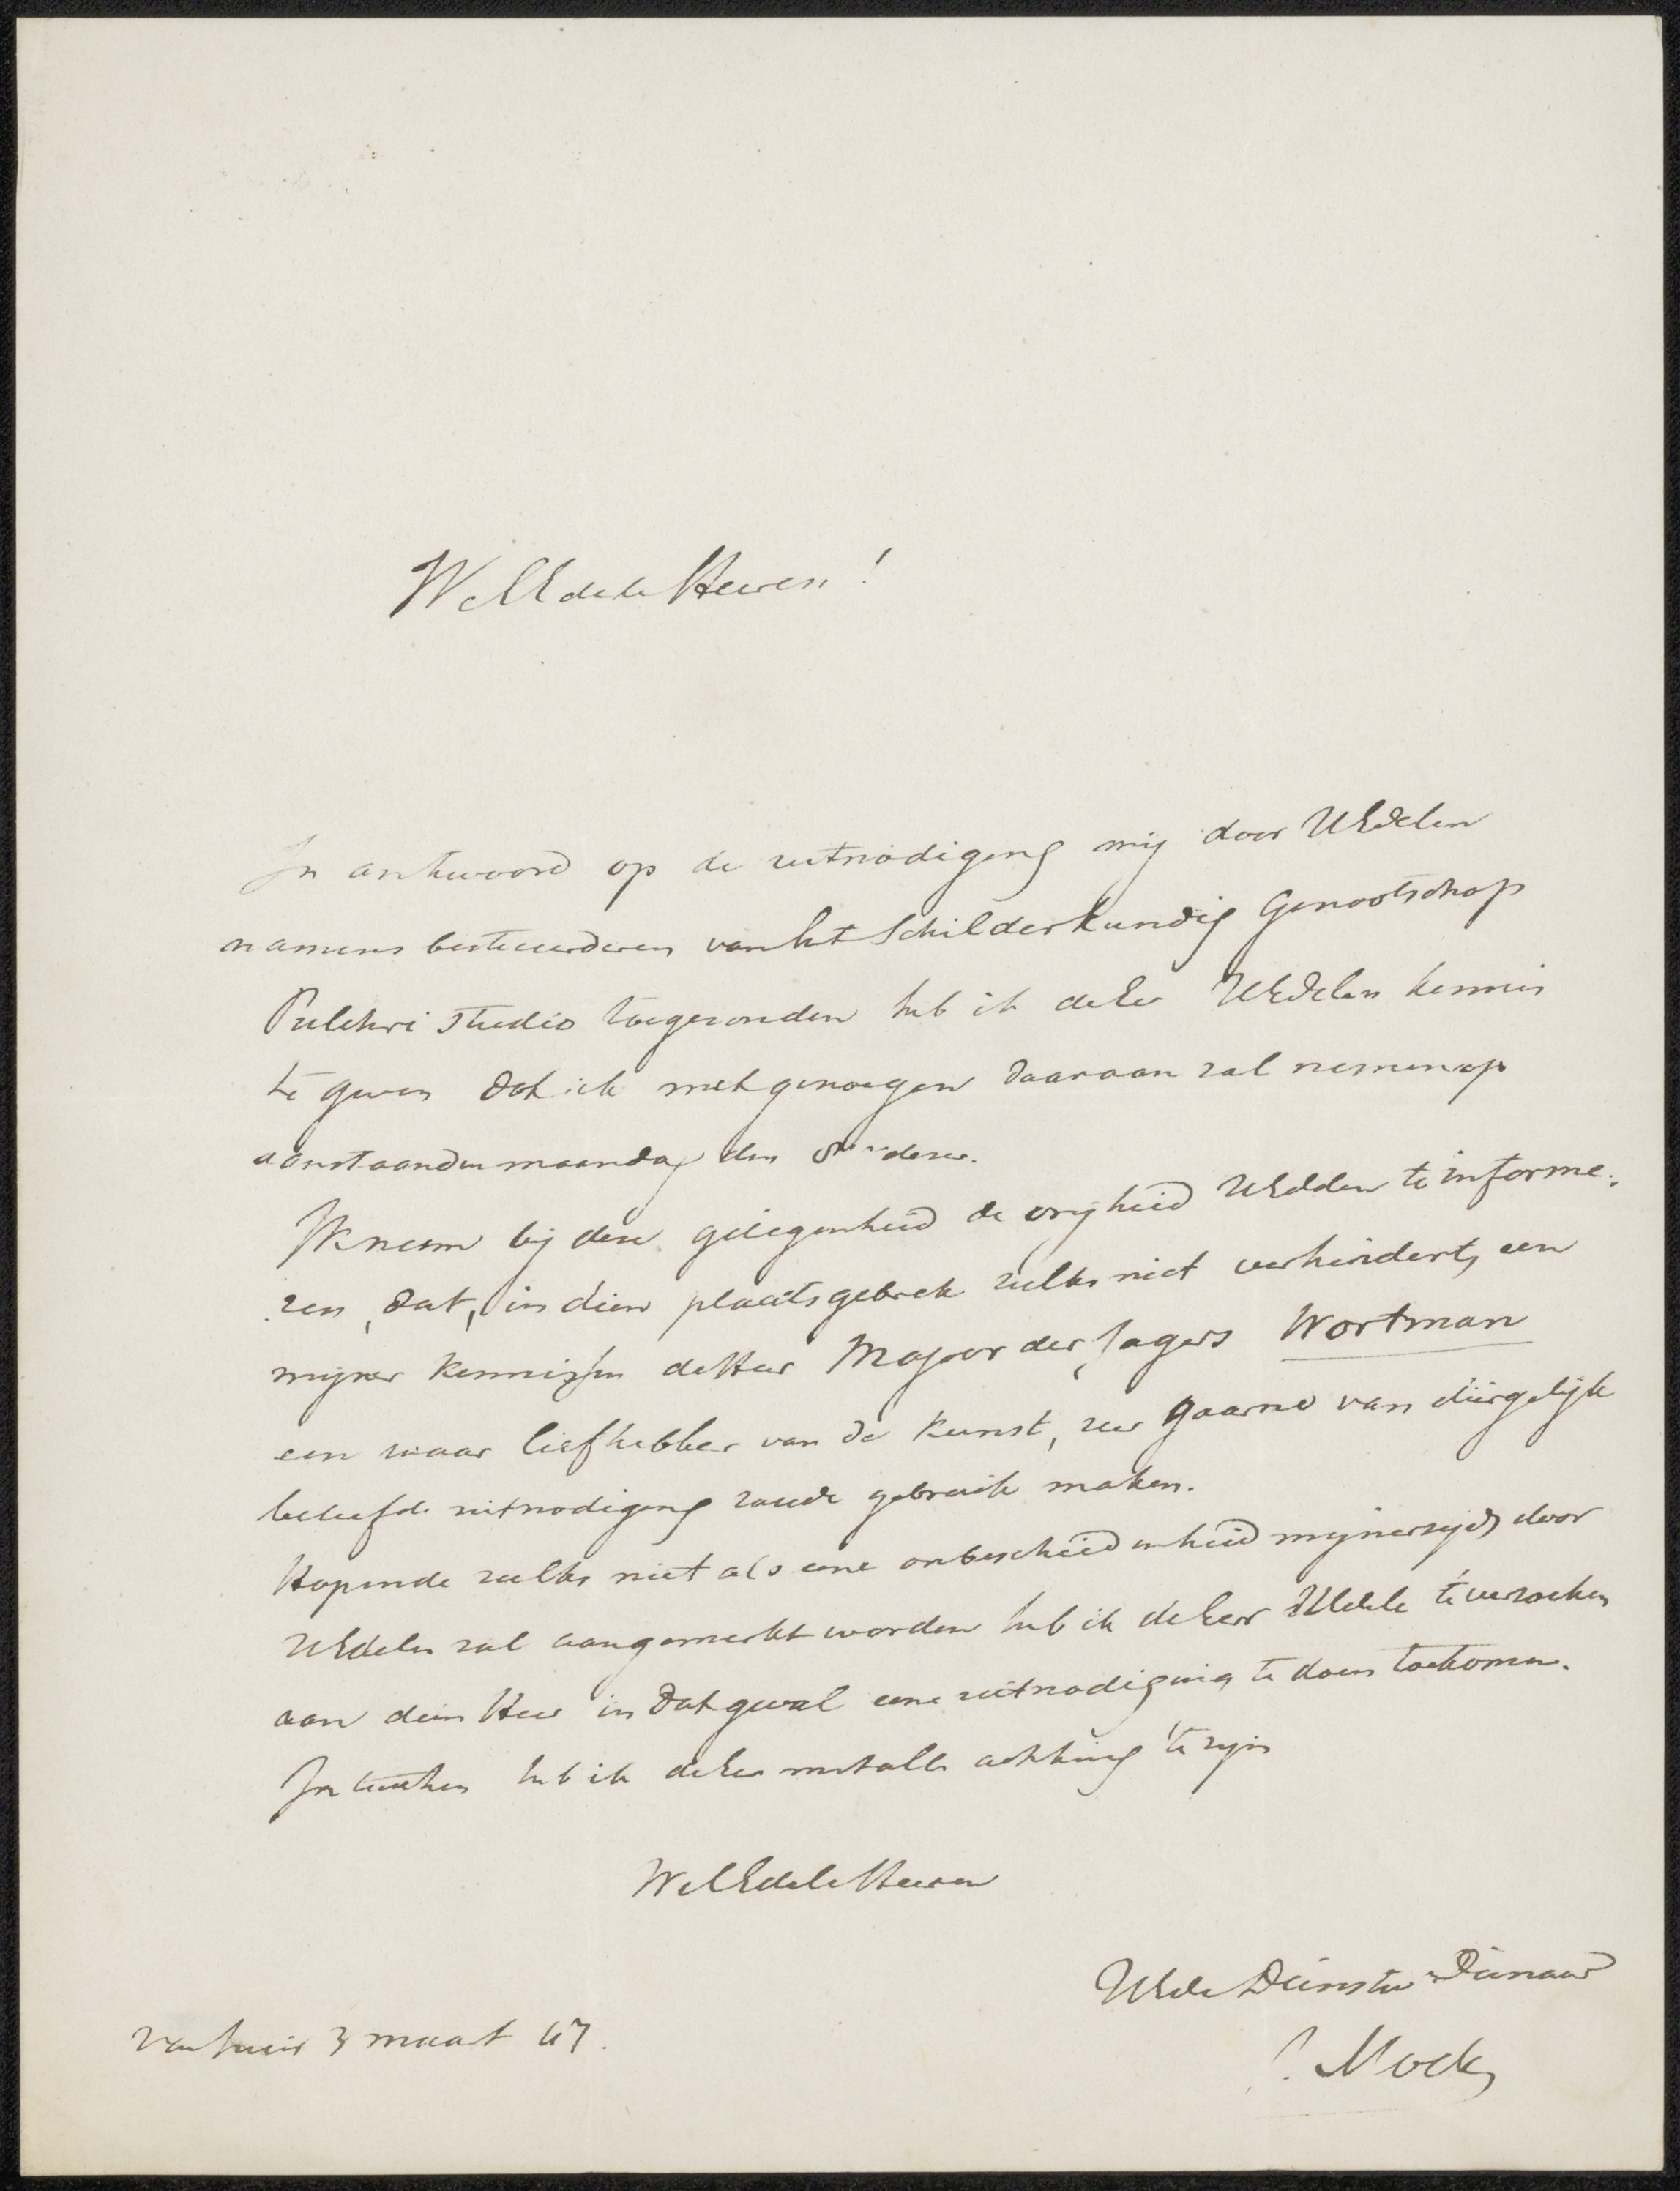 WelEdele Heeren!
In antwoord op de uitnodiging mij door UEdelen
namens bestuurderen van het Schilderkundig Genootschap
Pulchri Studio toegezonden heb ik de Eer UEdelen kennis
te geven dat ik met genoegen daaraan zal nemen op
aanstaanden maandag den 8ste dezer.
Ik neem bij deze gelegenheid de vrijheid UEdelen te informe:
ren, dat, indien plaatsgebrek zulks niet verhindert, een
mijner kennissen de Heer Majoor der Jagers Wortman
een waar liefhebber van de Kunst, zeer gaarne van diergelijk
beleefde uitnodiging zoude gebruik maken.
Hopende zulks niet als eene onbescheidenheid mijnerzijds door
UEdelen zal aangemerkt worden heb ik de Eer UEdele te verzoeken
aan dien Heer in dat geval eene uitnodiging te doen toekomen.
Intusschen heb ik de Eer met alle achting te zijn
WelEdele Heeren
UEde Dienstw Dienaar
Van huis 3 maart 47.
J. Mock